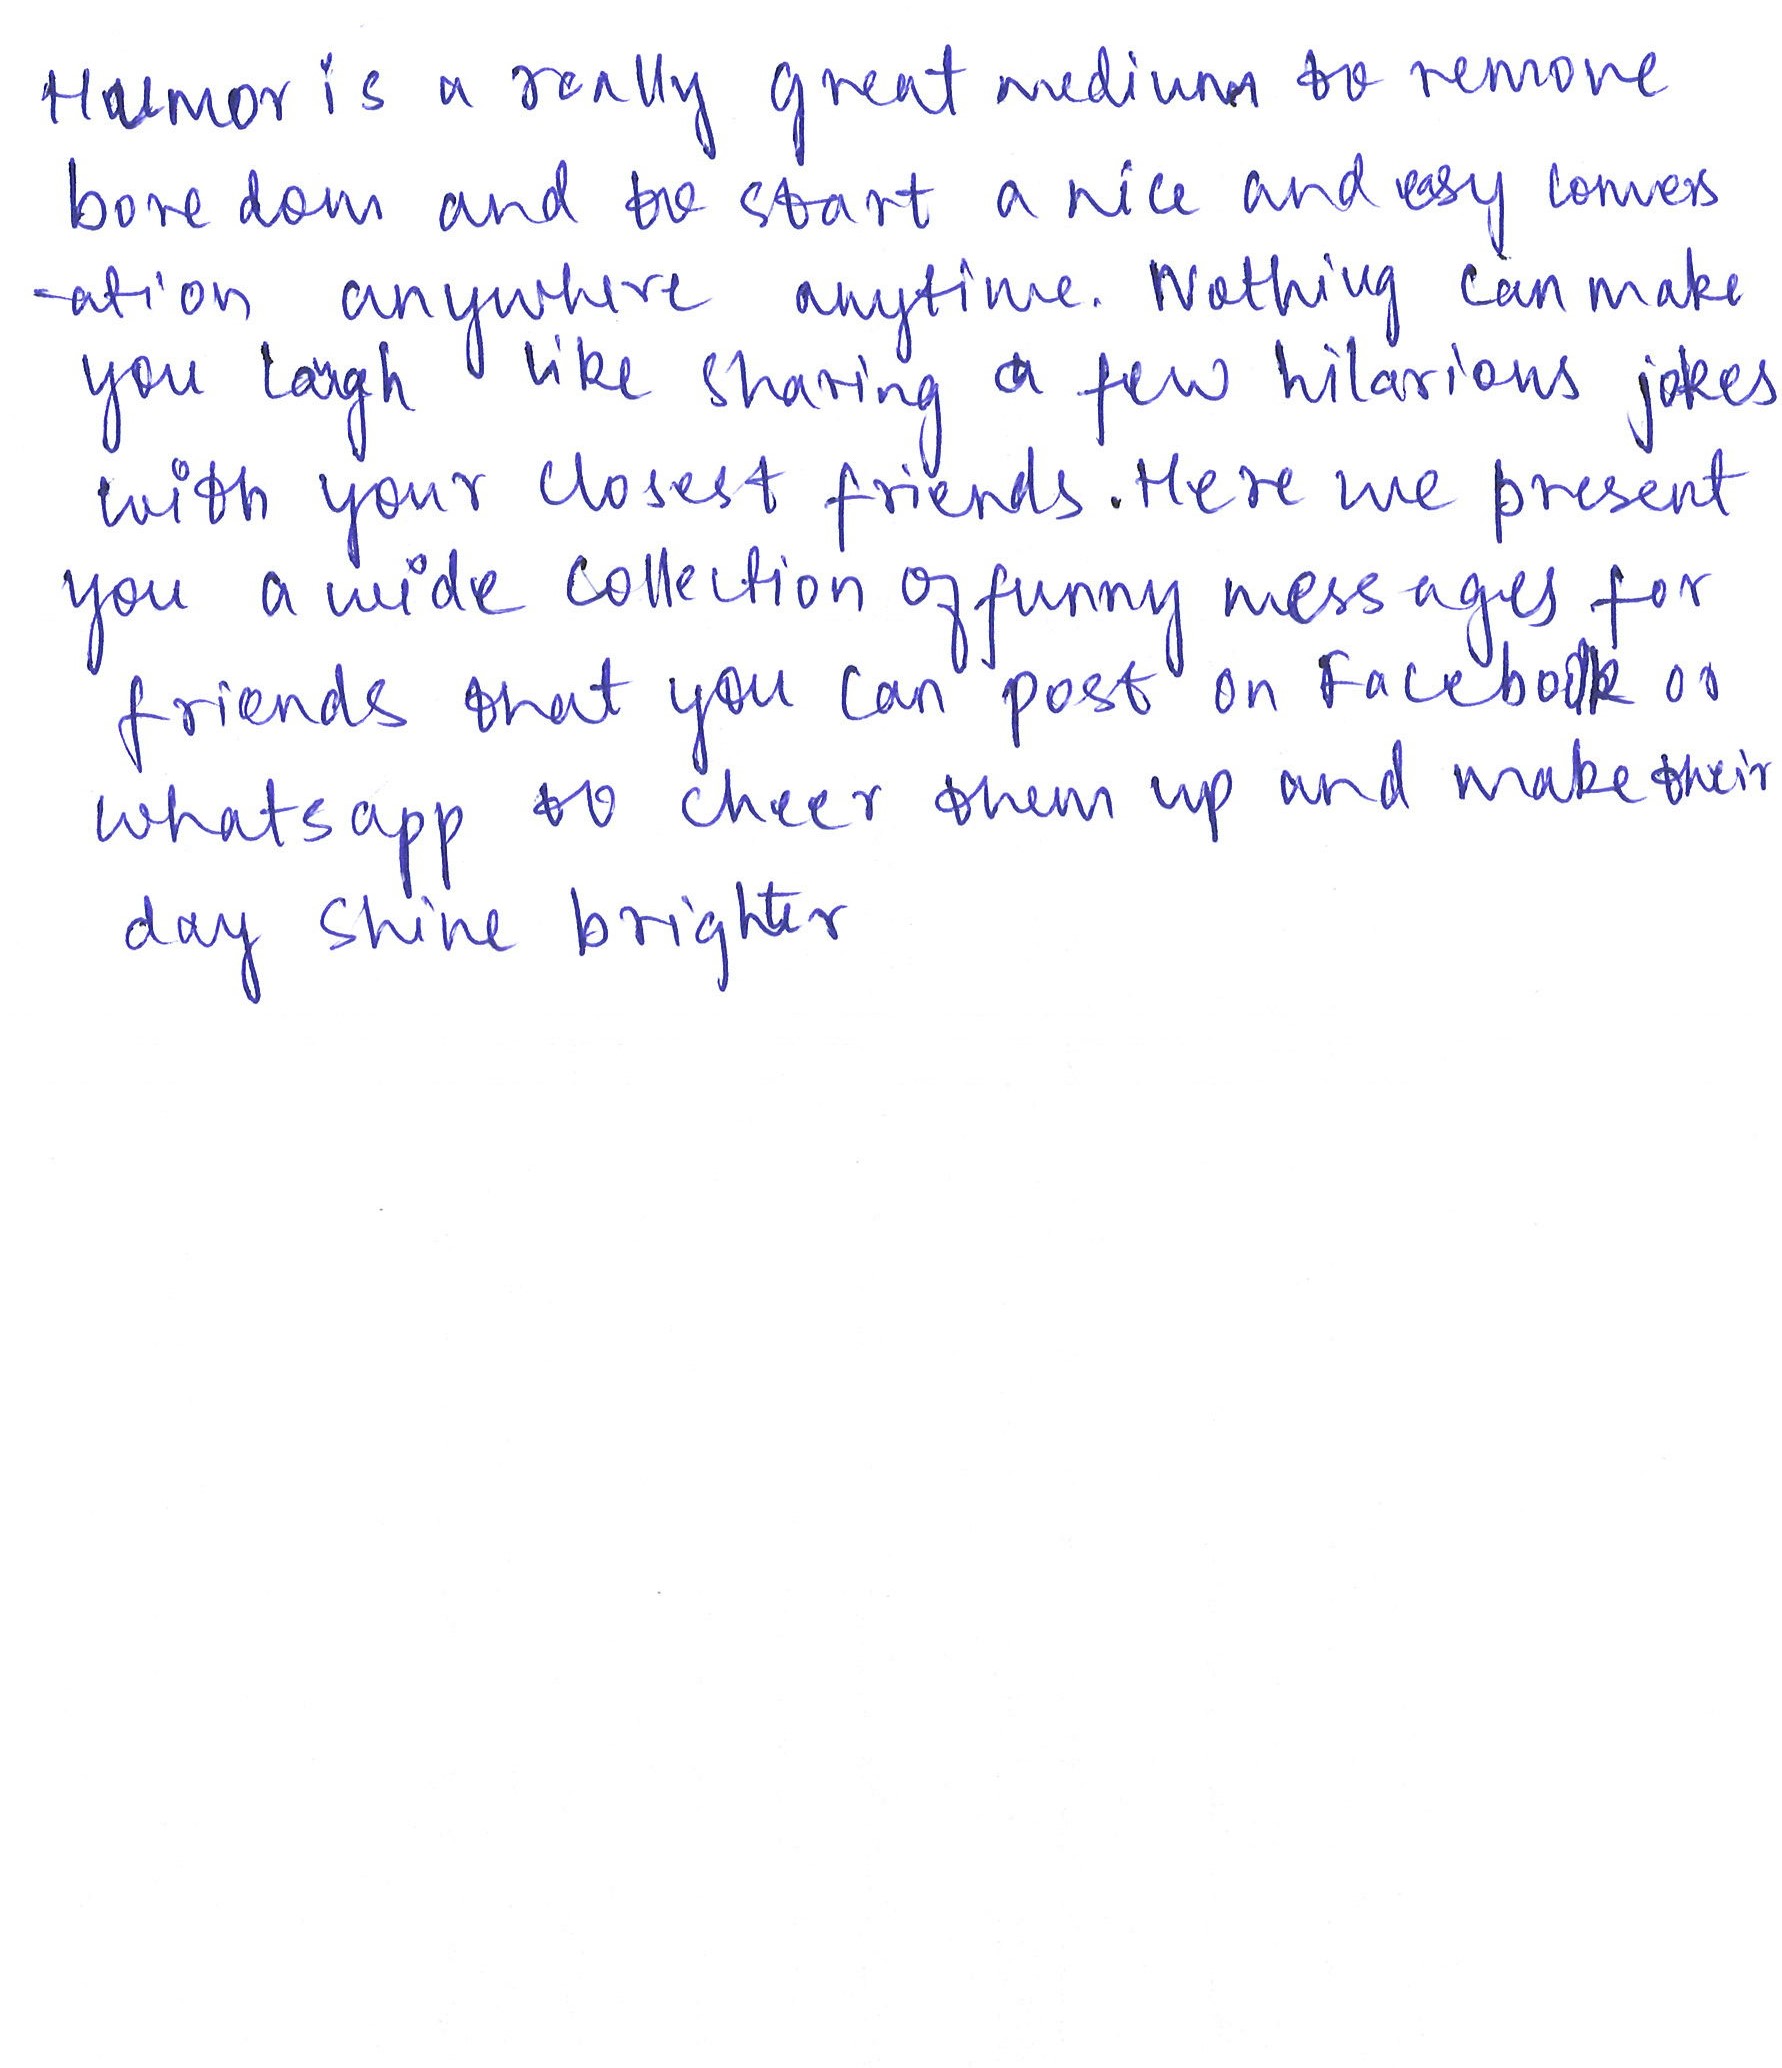 Humor is a really great medium to remove
boredom and to start a nice and easy convers
-ation anywhere anytime. Nothing can make
you laugh like sharing a few hilarious jokes
with your closest friends. Here we present
you a wide collection of funny messages for
friends that you can post on Facebook or
whatsapp to cheer them up and make their
day shine brighter